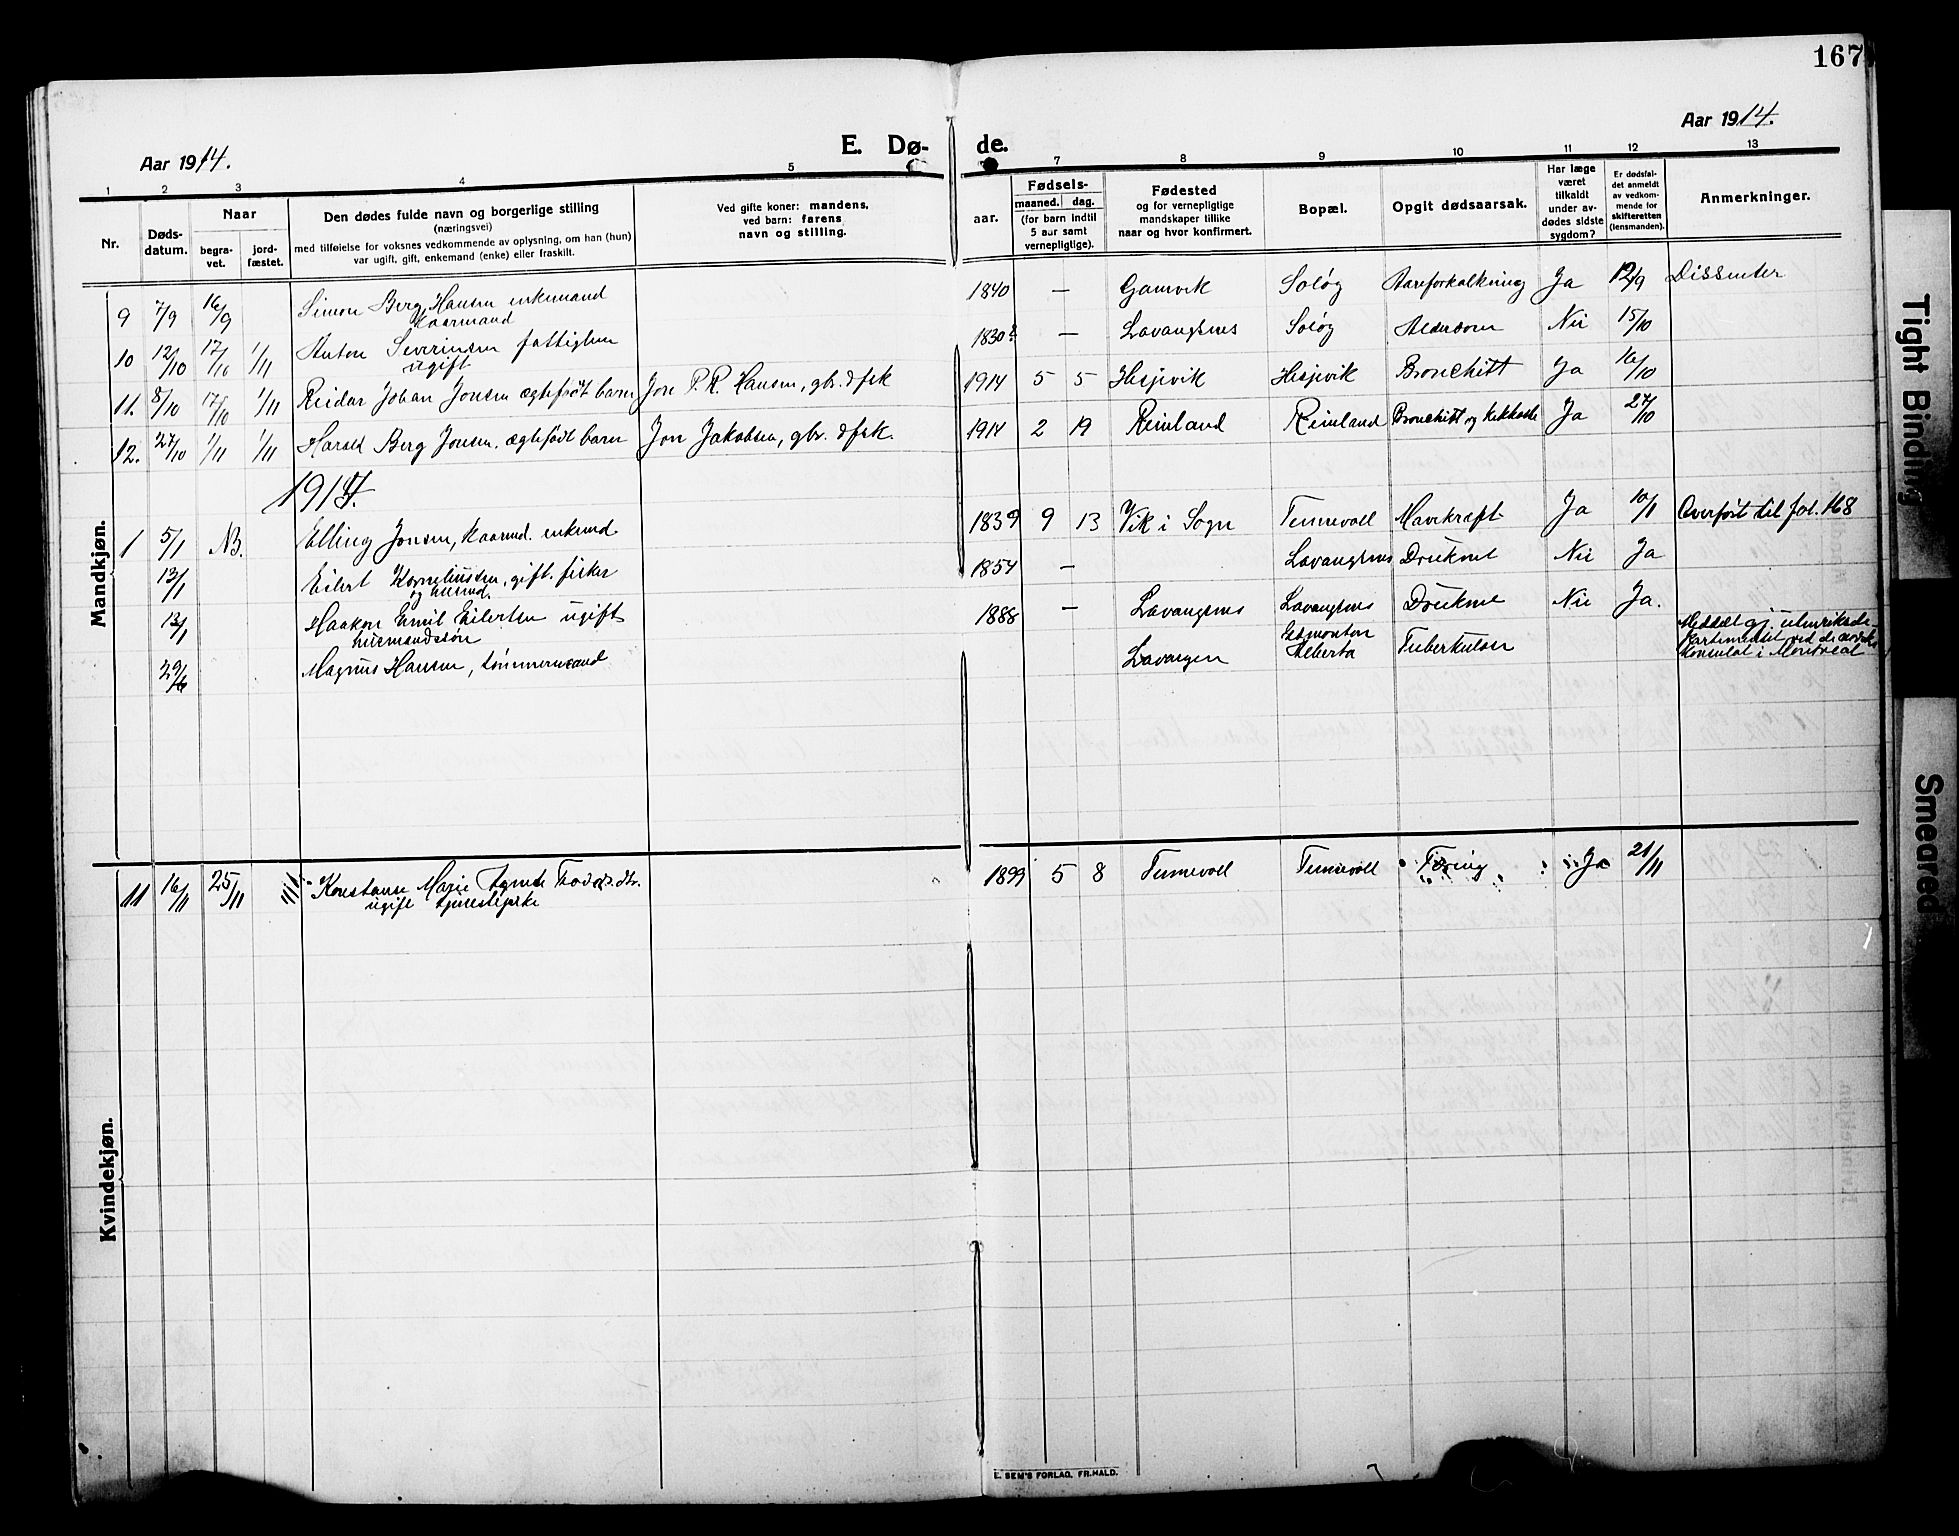 167
Aar 1914.
E. Dø-
de.
Aar 1914.
1 2 3 4 5 7 8 9 10 11 12 13
Nr.
Døds-
datum.
Naar
begra-
vet.
jord-
fæstet.
Den dødes fulde navn og borgerlige stilling
(næringsvei)
med tilføielse for voksnes vedkommende av oplysning, om han (hun)
var ugift, gift, enkemand (enke) eller fraskilt.
Ved gifte koner: mandens,
ved barn: farens
navn og stilling.
Fødsels-
aar.
maaned. dag.
(for barn indtil
5 aar samt
vernepligtige).
Fødested
og for vernepligtige
mandskaper tillike
naar og hvor konfirmert.
Bopæl.
Opgit dødsaarsak.
Har læge
været
tilkaldt
under av-
dødes sidste
sygdom?
Er dødsfal-
det anmeldt
av vedkom-
mende for
skifteretten
(lensmanden).
Anmerkninger.
Mandkjøn.
9 7/9 16/9 Simon Berg Hansen enkemand
Kaarmand
1840 — Gamvik Soløg Aareforkalkning Ja 12/9 Dissenter
10 12/10 17/10 1/11 Anton Severinsen fattiglem
ugift
1830? — Lavangsnes Soløg Alderdom Nei 15/10
11. 8/10 17/10 1/11 Reidar Johan Jonsen ægtefødt barn Jon P. R. Hansen, gbr. & fsk
1914 5 5 Hesjevik Hesjevik Bronchitt Ja 16/10
12. 27/10 1/11 1/11 Harald Berg Jonsen, ægtefødt barn Jon Jakobsen, gbr. & fsk.
1914 2 19 Reinland Reinland Bronchitt og kikhoste Ja 27/10
1 5/1 NB. Elling Jonsen, kaarmd. enkemd
1839 9 13 Vik i Sogn Tennevoll Mavekræft Ja 10/1 Overført til fol. 168
13/1 Eilert Korneliussen, gift. fisker
og husmd.
1854 — Lavangsnes Druknet Nei Ja
13/1 Haakon Emil Eilertsen ugift
husmandssøn
1888 — Lavangsnes Lavangsnes Druknet Nei Ja.
29/6 Magnus Hansen, tømmermand
Lavangen Edmonton
Alberta
Tuberkulose
Meddelt gj. utenriksde-
partementet ved det norske
Konsulat i Montreal
Kvindekjøn.
11 16/11 25/11 Konstanse Marie Agnete
ugift tjenestepike
1899 5 8 Tennevoll Tennevoll Tæring Ja 21/11
E. SEM'S FORLAG, FR.HALD.
Tight Binding
Smeared